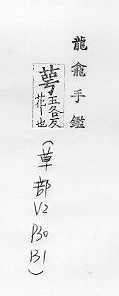 龍龕手鑑
五各反
花也
(草部 V2 P30 B1)